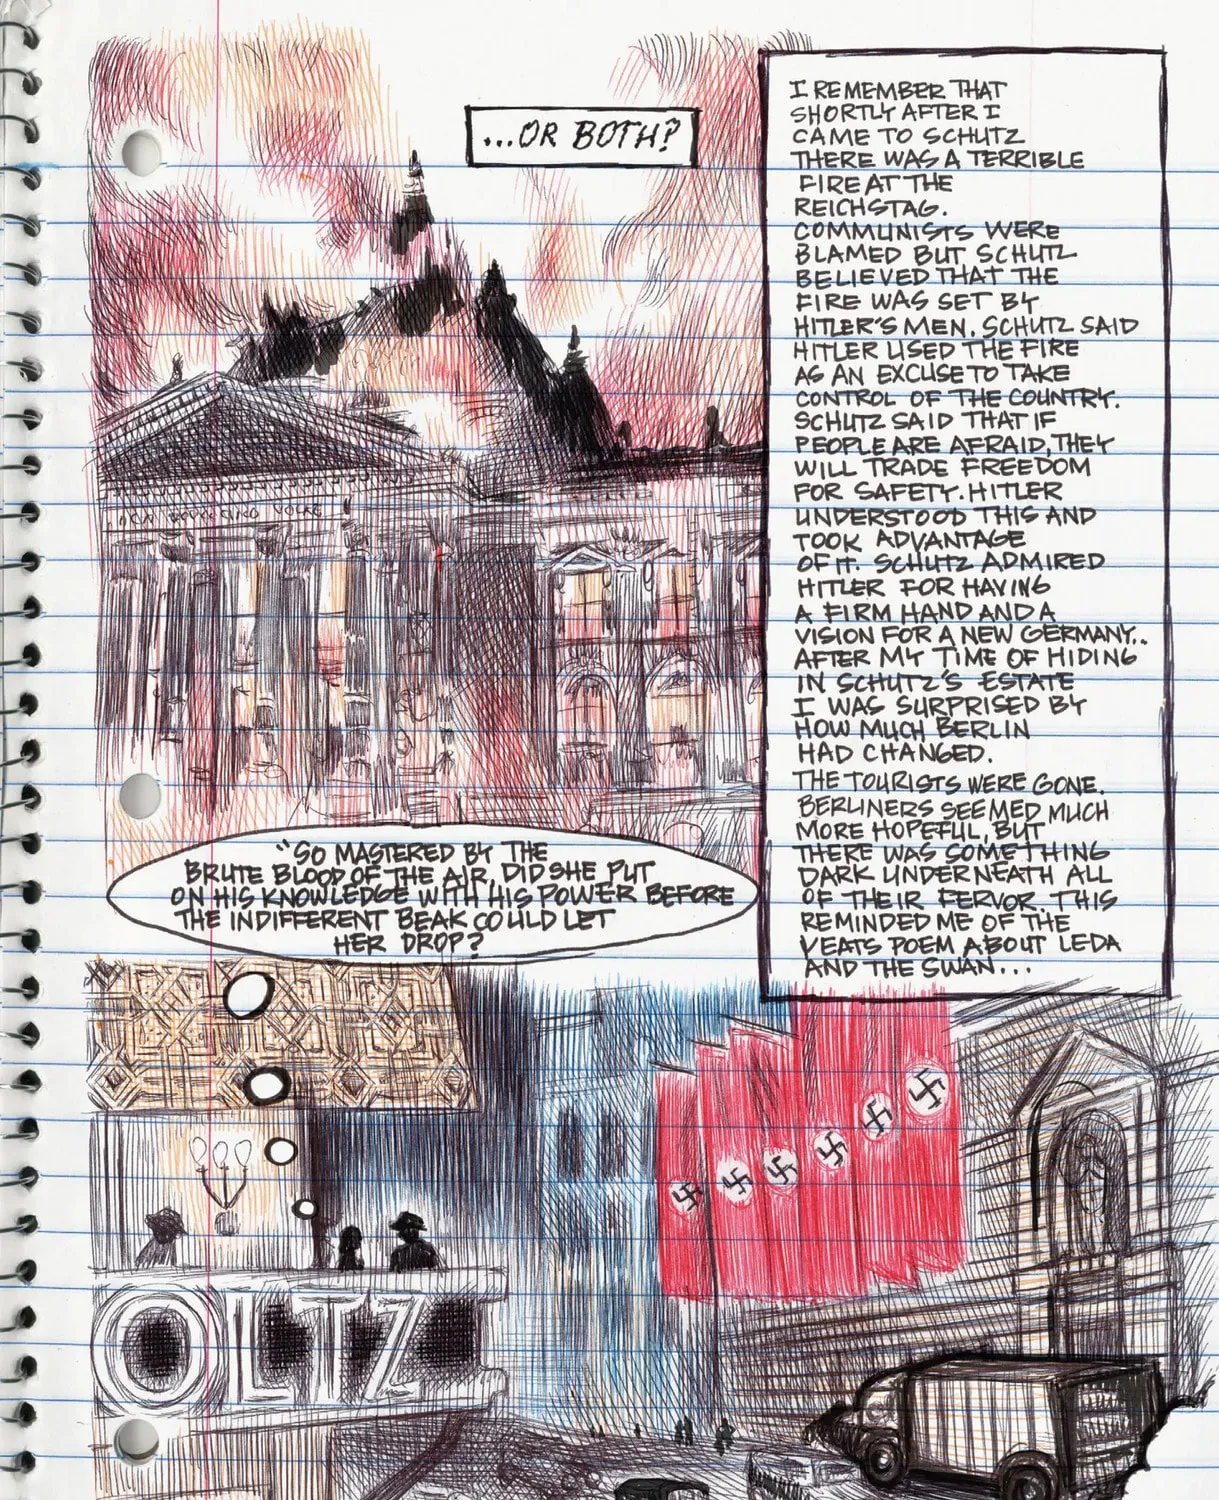 ...OR BOTH?
I REMEMBER THAT
SHORTLY AFTER I
CAME TO SCHUTZ
THERE WAS A TERRIBLE
FIRE AT THE
REICHSTAG.
COMMUNISTS WERE
BLAMED BUT SCHUTZ
BELIEVED THAT THE
FIRE WAS SET BY
HITLER'S MEN. SCHUTZ SAID
HITLER USED THE FIRE
AS AN EXCUSE TO TAKE
CONTROL OF THE COUNTRY.
SCHUTZ SAID THAT IF
PEOPLE ARE AFRAID, THEY
WILL TRADE FREEDOM
FOR SAFETY. HITLER
UNDERSTOOD THIS AND
TOOK ADVANTAGE
OF IT. SCHUTZ ADMIRED
HITLER FOR HAVING
A FIRM HAND AND A
VISION FOR A NEW GERMANY..
AFTER MY TIME OF HIDING
IN SCHUTZ'S ESTATE
I WAS SURPRISED BY
HOW MUCH BERLIN
HAD CHANGED.
THE TOURISTS WERE GONE.
BERLINERS SEEMED MUCH
MORE HOPEFUL, BUT
THERE WAS SOMETHING
DARK UNDERNEATH ALL
OF THEIR FERVOR. THIS
REMINDED ME OF THE
YEATS POEM ABOUT LEDA
AND THE SWAN...
"SO MASTERED BY THE
BRUTE BLOOD OF THE AIR, DID SHE PUT
ON HIS KNOWLEDGE WITH HIS POWER BEFORE
THE INDIFFERENT BEAK COULD LET
HER DROP?
OLTZ